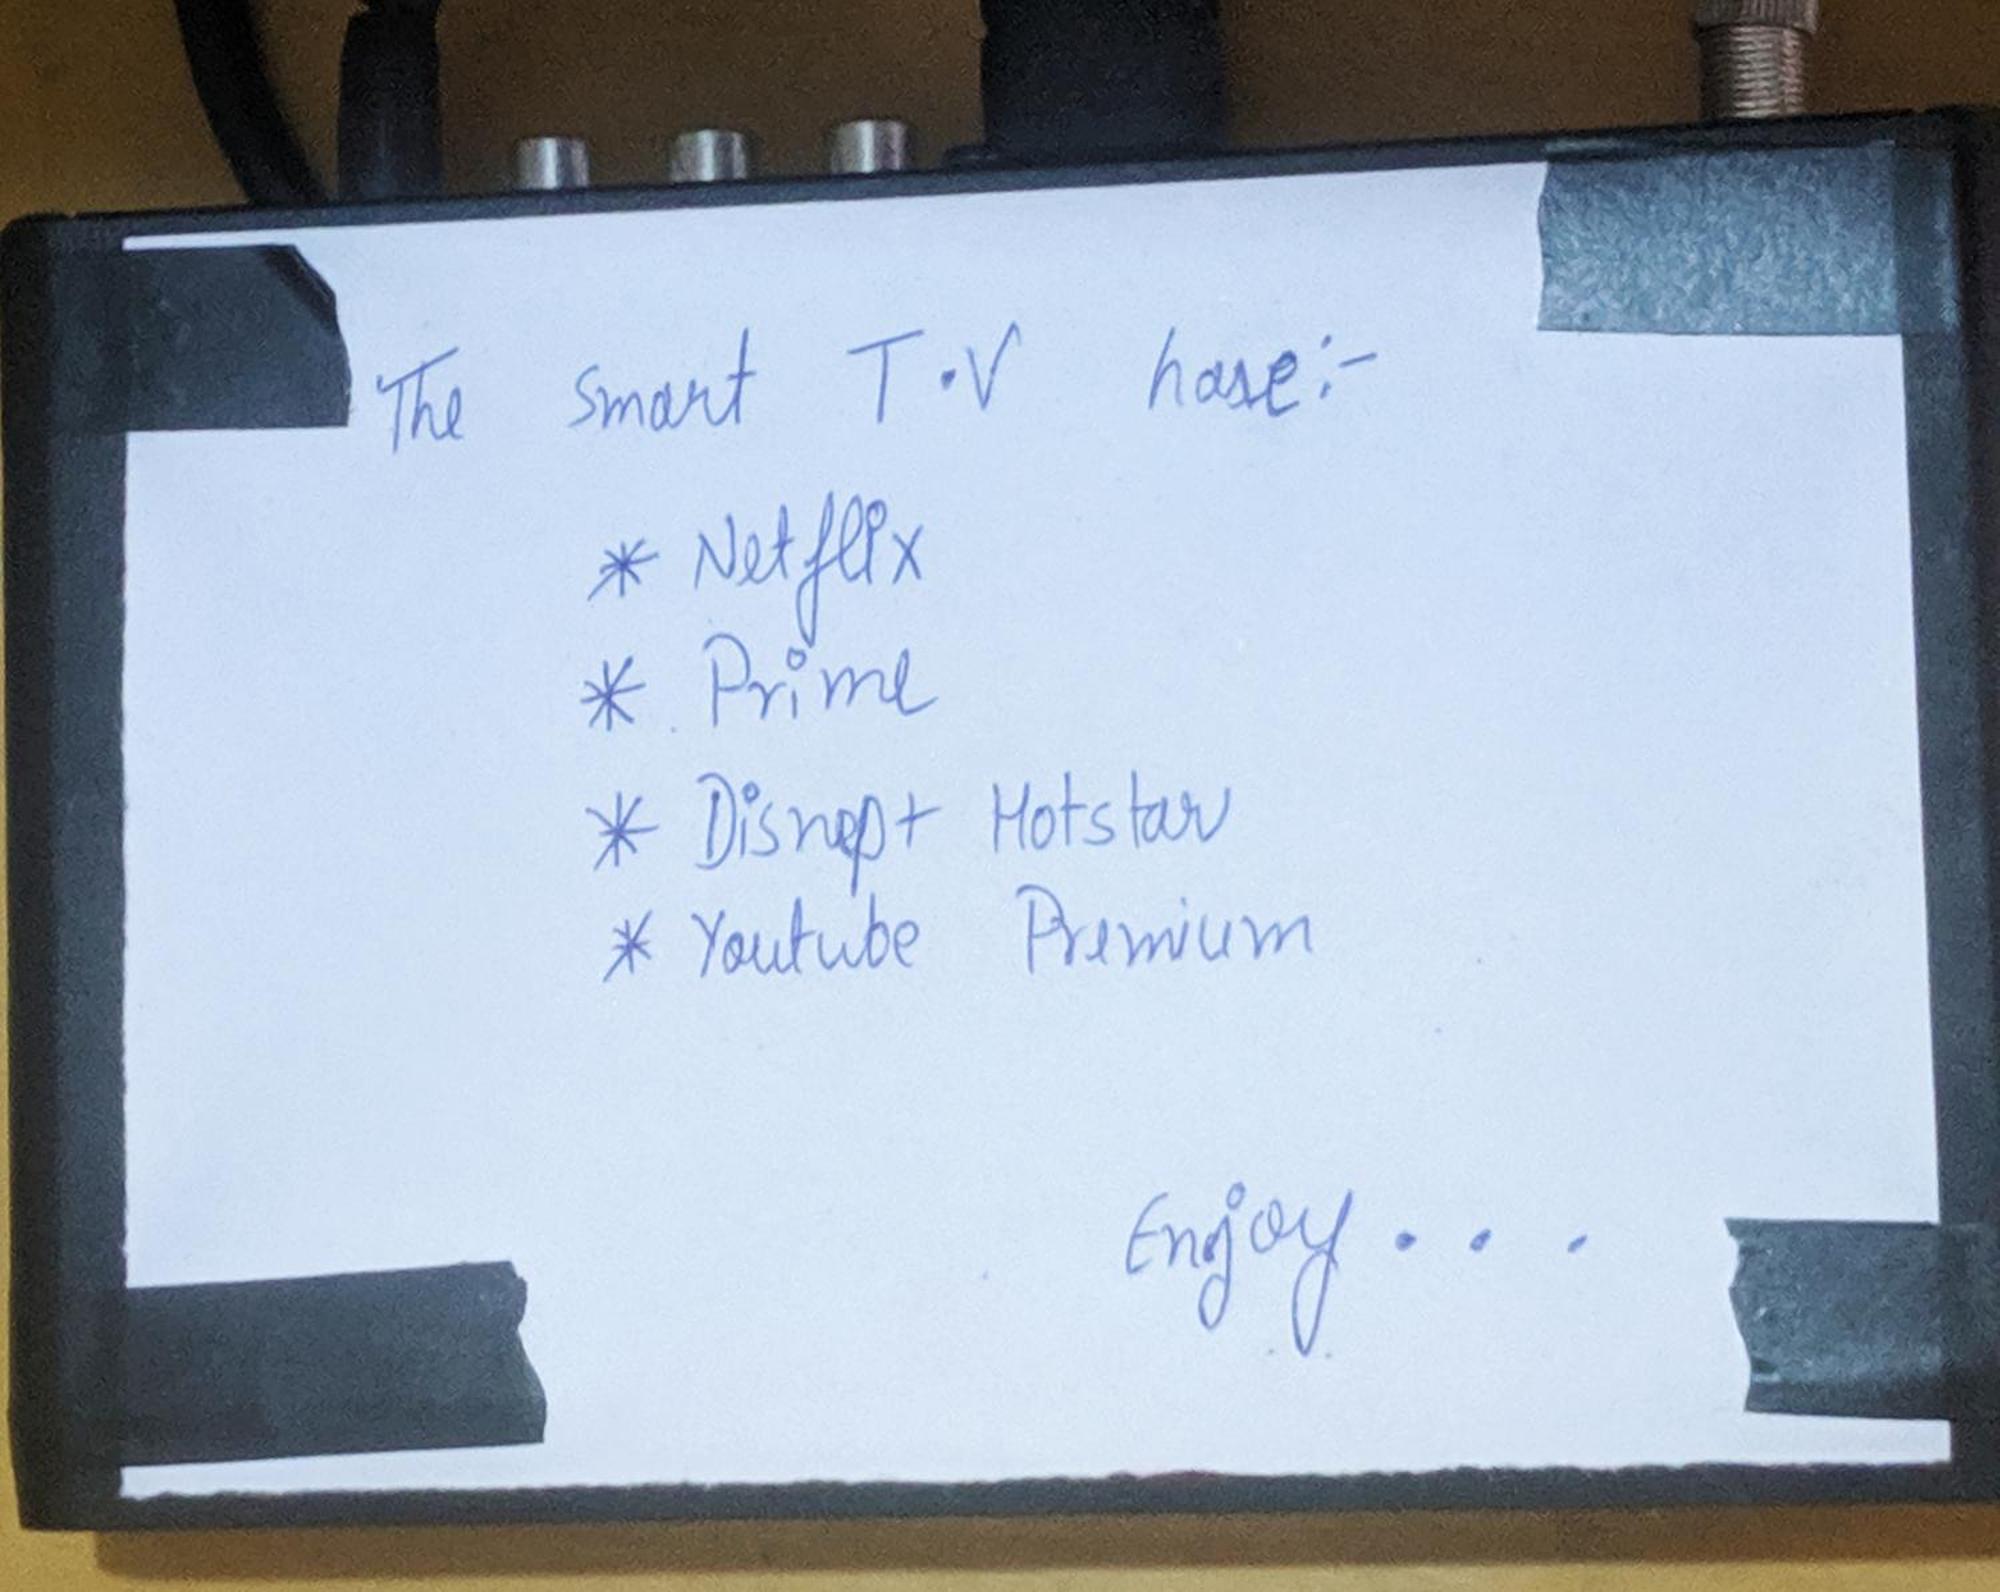 The smart T.V hase:-
* Netflix
* Prime
* Disnep+ Hotstar
* Youtube Premium
Enjoy . . .